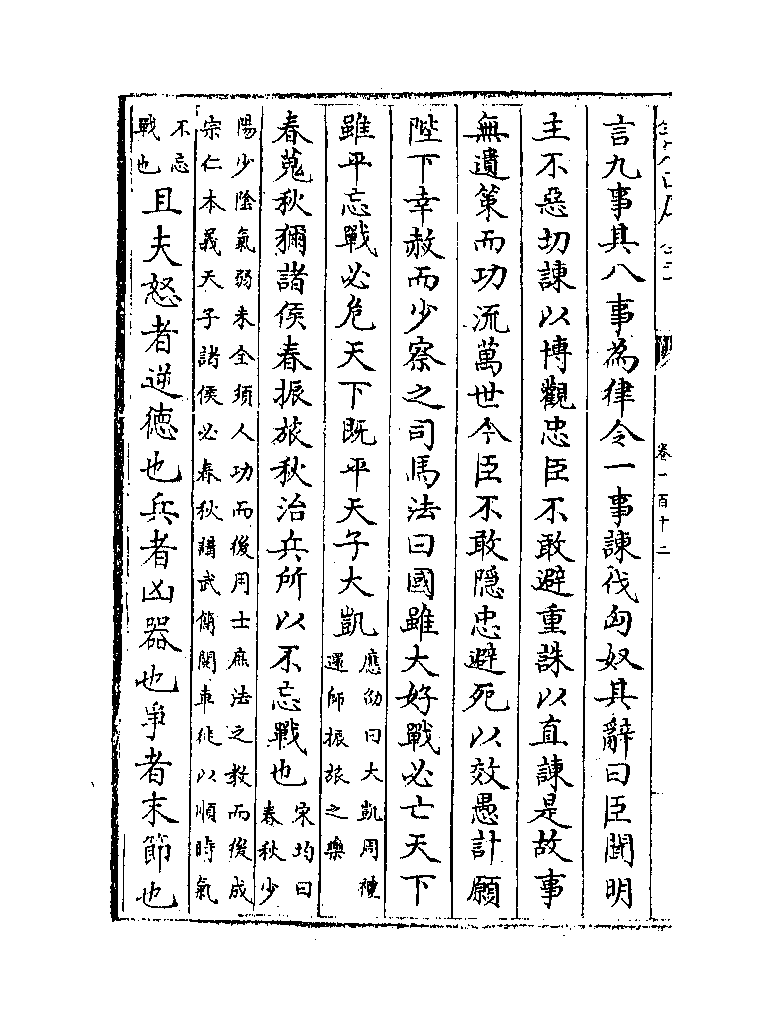 卷一百十二
言九事其八事為律令一事諫伐匈奴其辭曰臣聞明
主不惡切諫以博觀忠臣不敢避重誅以直諫是故事
無遺策而功流萬世今臣不敢隠忠避死以效愚計願
陛下幸赦而少察之司馬法曰國雖大好戰必亡天下
雖平忘戰必危天下既平天子大凱
應劭曰大凱周禮
還師振旅之樂
春蒐秋獮諸侯春振旅秋治兵所以不忘戰也
宋均曰
春秋少
陽少陰氣弱未全須人功而後用士庶法之教而後成
宗仁本義天子諸侯必春秋講武簡閱車徒以順時氣
不忘
戰也
且夫怒者逆德也兵者凶器也爭者末節也